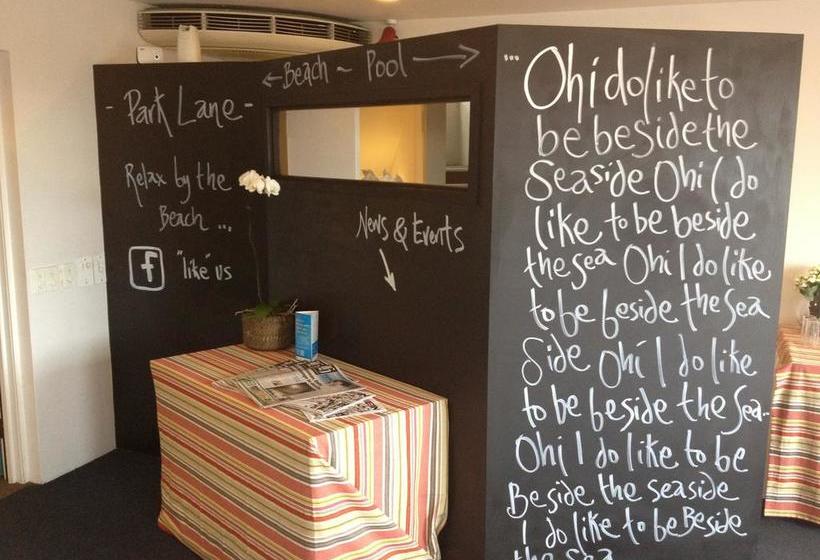 - Park Lane -
Relax by the
Beach ...
f "like" us
← Beach ~ Pool →
News & Events
... Oh i do like to
be beside the
Seaside Oh i I do
like to be beside
the sea Oh I do like
to be beside the sea
Side Oh i I do like
to be beside the Sea..
Oh i I do like to be
Beside the seaside
I do like to be Beside
the sea